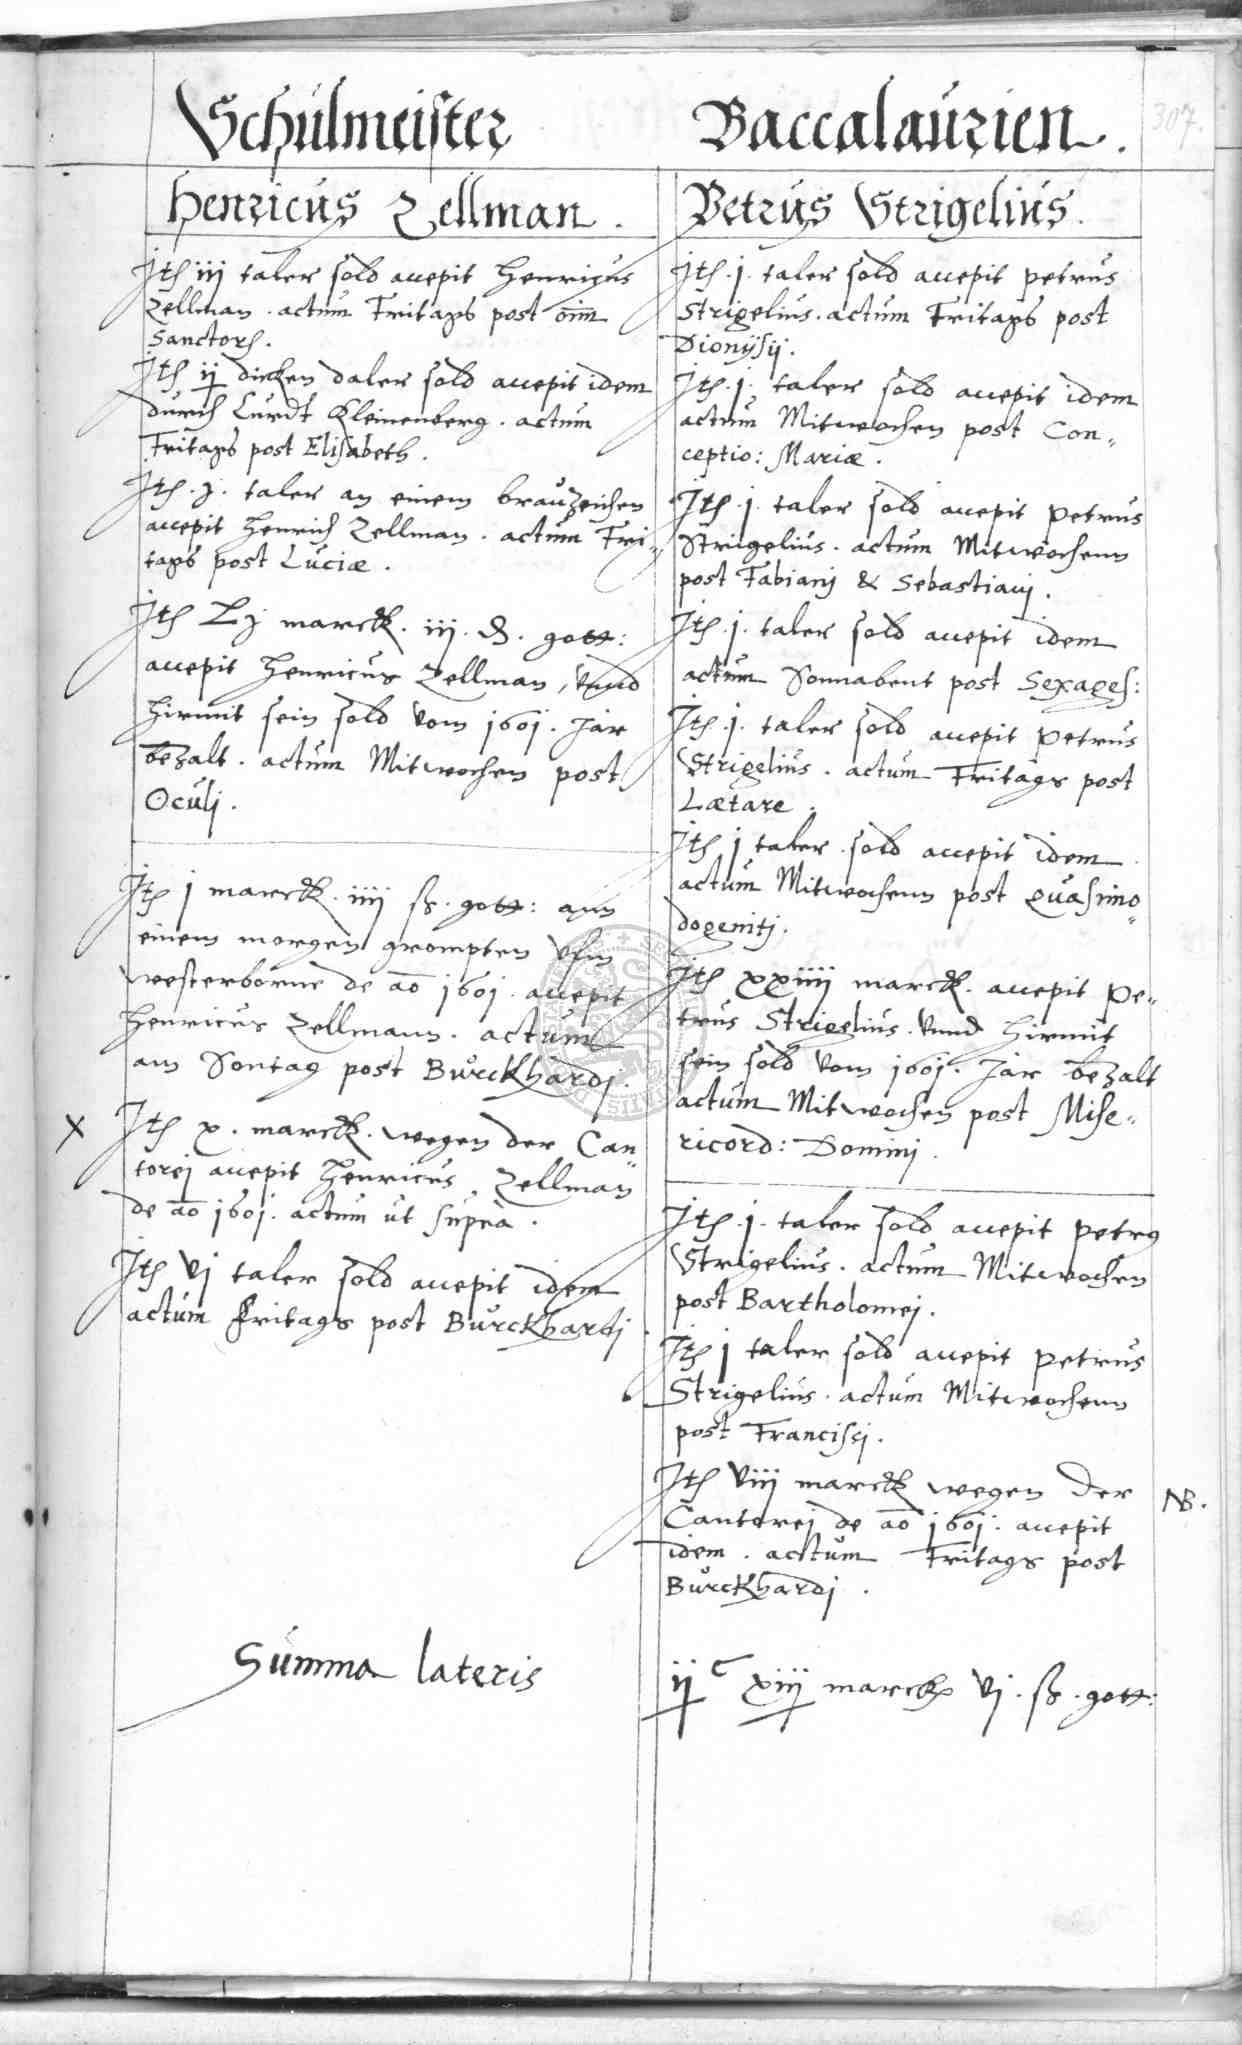 307.
Schulmeister
Henricus Zellman.
Jtē iij taler sold accepit Henricus
Zellman. actum Fritags post oīm
Sanctorē.
Jtē ij dicken daler sold accepit idem
durch Curdt Kleinenberg. actum
Fritags post Elisabeth.
Jtē. j. taler an einem brauzeichen
accepit Henrich Zellman. actum Fri-
tags post Luciæ.
Jtē Lj marck. iij. d. gott:
accepit Henricus Zellman, vnnd
hirmit sein sold vom 1601. Jar
bezalt. actum Mitwochen post
Oculj.
Jtē j marck. iiij ß. gott: ann
einem morgen grompten vfm
westerborne de aō 1601. accepit
Henricus Zellmann. actum
am Sontag post Burckhardj.
X
Jtē x. marck. wegen der Can-
torej accepit Henricus Zellman
de aō 1601. actum ut supra.
Jtē vj taler sold accepit idem
actum Fritags post Burckhardj
Baccalaurien.
Petrus Strigelius.
Jtē. j. taler sold accepit Petrus
Strigelius. actum Fritags post
Dionysij.
Jtē. j. taler sold accepit idem
actum Mitwochen post Con-
ceptio: Mariæ.
Jtē. j. taler sold accepit Petrus
Strigelius. actum Mitwochenn
post Fabianj & Sebastianj.
Jtē. j. taler sold accepit idem
actum Sonnabent post Sexages:
Jtē. j. taler sold accepit Petrus
Strigelius. actum Fritags post
Lætare.
Jtē j taler sold accepit idem
actum Mitwochenn post Quasimo-
dogenitj.
Jtē xxiiij marck. accepit Pe-
trus Strigelius. vnnd hirmit
sein sold vom 1601. Jar bezalt
actum Mitwochen post Mise-
ricord: Dominj.
Jtē. j. taler sold accepit Petrus
Strigelius. actum Mitwochen
post Bartholomej.
Jtē j taler sold accepit Petrus
Strigelius. actum Mitwochenn
post Francisçi.
Jtē viij marck wegen der
NB.
Cantorej de aō 1601. accepit
idem. actum Fritags post
Burckhardj.
Summa lateris
ijᶜ xiij marck vj. ß. gott: